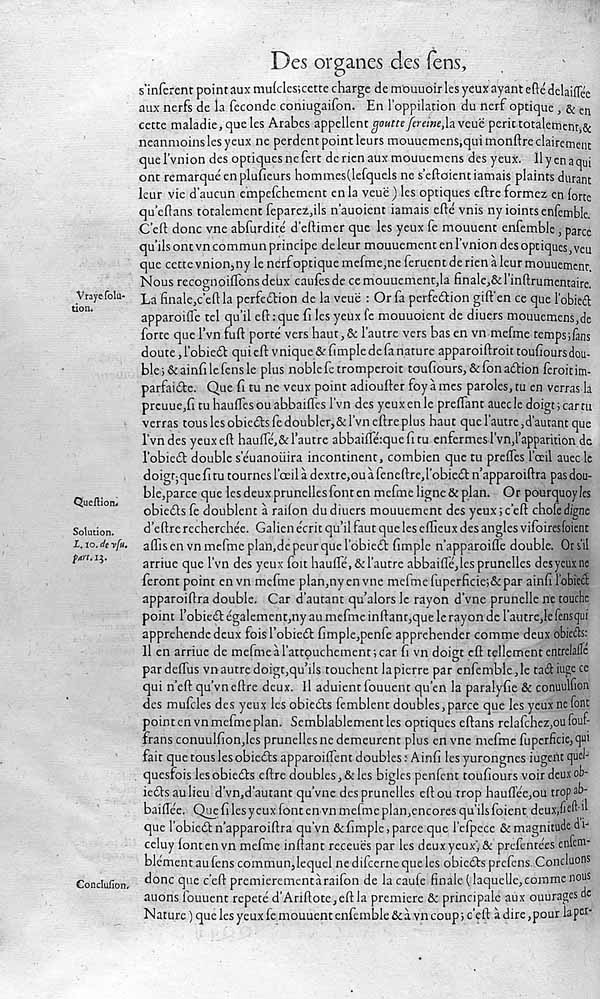 Des organes des ſens,
s'inſerent point aux muſcles; cette charge de mouuoir les yeux ayant eſté delaiſſée
aux nerfs de la ſeconde coniugaiſon. En l'oppilation du nerf optique, & en
cette maladie, que les Arabes appellent goutte ſereine, la veuë perit totalement, &
neanmoins les yeux ne perdent point leurs mouuemens, qui monſtre clairement
que l'vnion des optiques ne ſert de rien aux mouuemens des yeux. Il y en a qui
ont remarqué en pluſieurs hommes (leſquels ne s'eſtoient iamais plaints durant
leur vie d'aucun empeſchement en la veuë) les optiques eſtre formez en ſorte
qu'eſtans totalement ſeparez, ils n'auoient iamais eſté vnis ny ioints enſemble.
C'eſt donc vne abſurdité d'eſtimer que les yeux ſe mouuent enſemble, parce
qu'ils ont vn commun principe de leur mouuement en l'vnion des optiques, veu
que cette vnion, ny le nerf optique meſme, ne ſeruent de rien à leur mouuement.
Nous recognoiſſons deux cauſes de ce mouuement, la finale, & l'inſtrumentaire.
Vraye ſolu-
tion.
La finale, c'eſt la perfection de la veuë: Or ſa perfection giſt en ce que l'obiect
apparoiſſe tel qu'il eſt: que ſi les yeux ſe mouuoient de diuers mouuemens, de
ſorte que l'vn fuſt porté vers haut, & l'autre vers bas en vn meſme temps; ſans
doute, l'obiect qui eſt vnique & ſimple de ſa nature apparoiſtroit touſiours dou-
ble; & ainſi le ſens le plus noble ſe tromperoit touſiours, & ſon action ſeroit im-
parfaicte. Que ſi tu ne veux point adiouſter foy à mes paroles, tu en verras la
preuue, ſi tu hauſſes ou abbaiſſes l'vn des yeux en le preſſant auec le doigt; car tu
verras tous les obiects ſe doubler, & l'vn eſtre plus haut que l'autre, d'autant que
l'vn des yeux eſt hauſſé, & l'autre abbaiſſé: que ſi tu enfermes l'vn, l'apparition de
l'obiect double s'éuanoüira incontinent, combien que tu preſſes l'œil auec le
doigt; que ſi tu tournes l'œil à dextre, ou à ſeneſtre, l'obiect n'apparoiſtra pas dou-
Queſtion.
ble, parce que les deux prunelles ſont en meſme ligne & plan. Or pourquoy les
obiects ſe doublent à raiſon du diuers mouuement des yeux; c'eſt choſe digne
Solution.
L. 10. de vſu.
part. 13.
d'eſtre recherchée. Galien écrit qu'il faut que les eſſieux des angles viſoires ſoient
aſſis en vn meſme plan, de peur que l'obiect ſimple n'apparoiſſe double. Or s'il
arriue que l'vn des yeux ſoit hauſſé, & l'autre abbaiſſé, les prunelles des yeux ne
ſeront point en vn meſme plan, ny en vne meſme ſuperficie; & par ainſi l'obiect
apparoiſtra double. Car d'autant qu'alors le rayon d'vne prunelle ne touche
point l'obiect également, ny au meſme inſtant, que le rayon de l'autre, le ſens qui
apprehende deux fois l'obiect ſimple, penſe apprehender comme deux obiects:
Il en arriue de meſme à l'attouchement; car ſi vn doigt eſt tellement entrelaſſé
par deſſus vn autre doigt, qu'ils touchent la pierre par enſemble, le tact iuge ce
qui n'eſt qu'vn eſtre deux. Il aduient ſouuent qu'en la paralyſie & conuulſion
des muſcles des yeux les obiects ſemblent doubles, parce que les yeux ne ſont
point en vn meſme plan. Semblablement les optiques eſtans relaſchez, ou ſouf-
frans conuulſion, les prunelles ne demeurent plus en vne meſme ſuperficie, qui
fait que tous les obiects apparoiſſent doubles: Ainſi les yurongnes iugent quel-
quesfois les obiects eſtre doubles, & les bigles penſent touſiours voir deux ob-
iects au lieu d'vn, d'autant qu'vne des prunelles eſt ou trop hauſſée, ou trop ab-
baiſſée. Que ſi les yeux ſont en vn meſme plan, encores qu'ils ſoient deux, ſi eſt-il
que l'obiect n'apparoiſtra qu'vn & ſimple, parce que l'eſpece & magnitude d'i-
celuy ſont en vn meſme inſtant receuës par les deux yeux, & preſentées enſem-
blément au ſens commun, lequel ne diſcerne que les obiects preſens. Concluons
Concluſion.
donc que c'eſt premierement à raiſon de la cauſe finale (laquelle, comme nous
auons ſouuent repeté d'Ariſtote, eſt la premiere & principale aux ouurages de
Nature) que les yeux ſe mouuent enſemble & à vn coup; c'eſt à dire, pour la per-